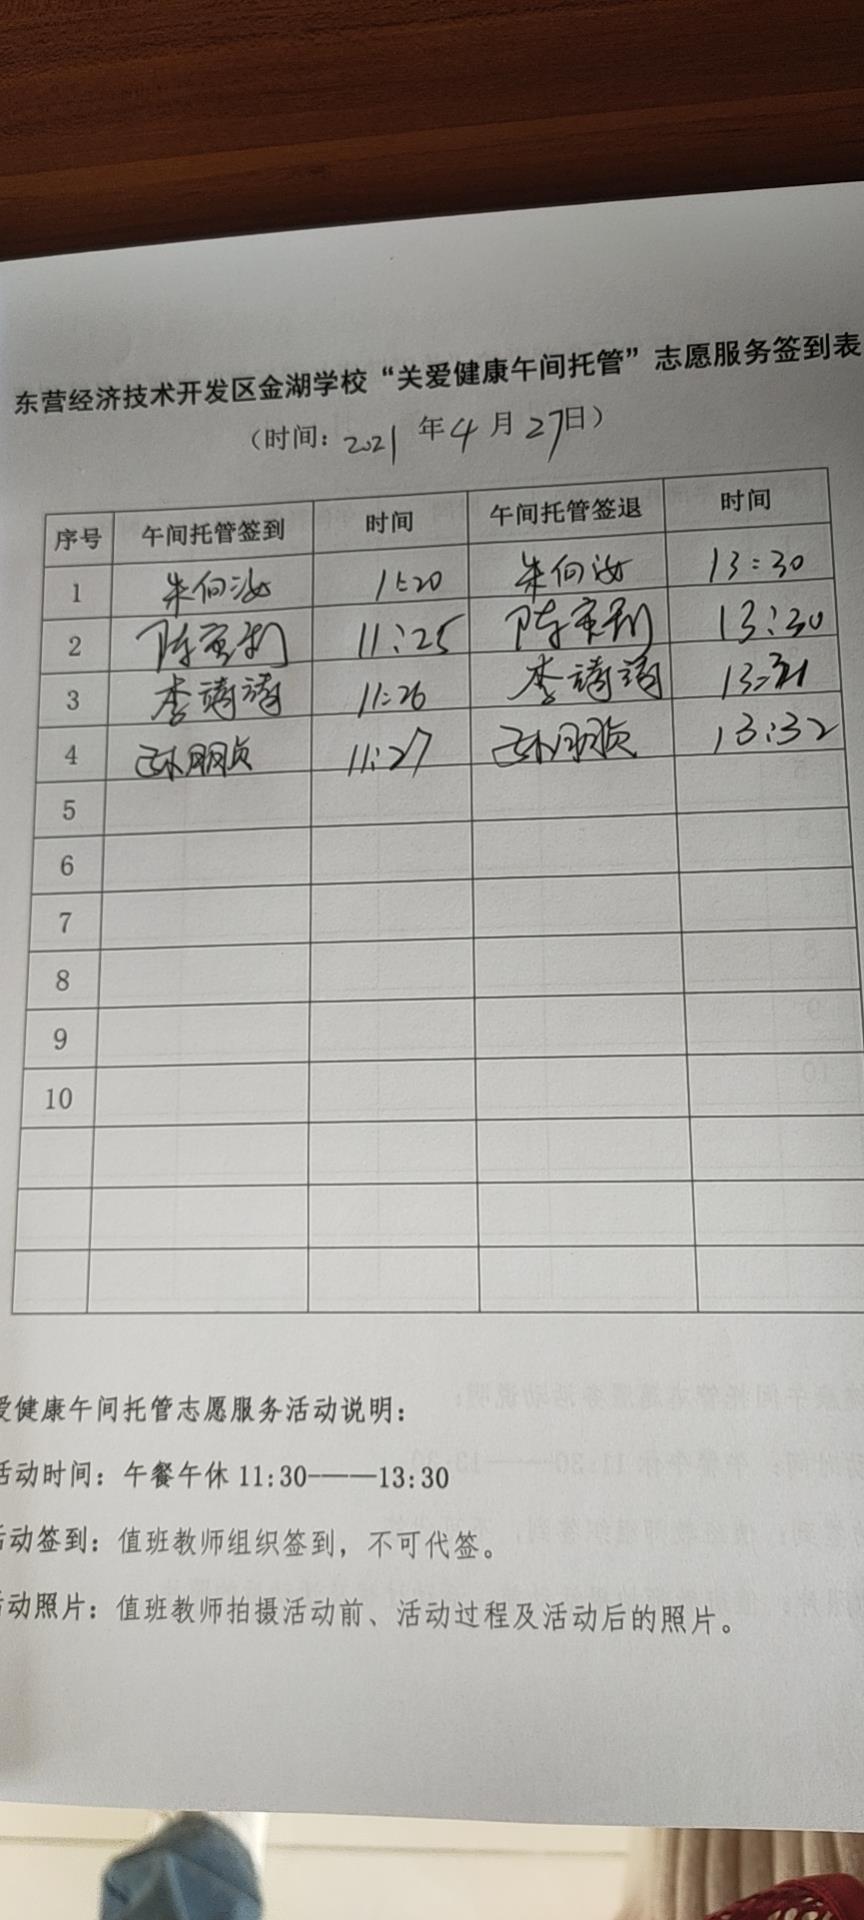 东营经济技术开发区金湖学校“关爱健康午间托管”志愿服务签到表
（时间：2021年4月27日）
序号 午间托管签到 时间 午间托管签退 时间
1 朱向汝 11:20 朱向汝 13:30
2 陈京利 11:25 陈京利 13:30
3 李靖靖 11:26 李靖靖 13:31
4 孙朋贞 11:27 孙朋贞 13:32
5
6
7
8
9
10
爱健康午间托管志愿服务活动说明：
活动时间：午餐午休11:30——13:30
活动签到：值班教师组织签到，不可代签。
活动照片：值班教师拍摄活动前、活动过程及活动后的照片。